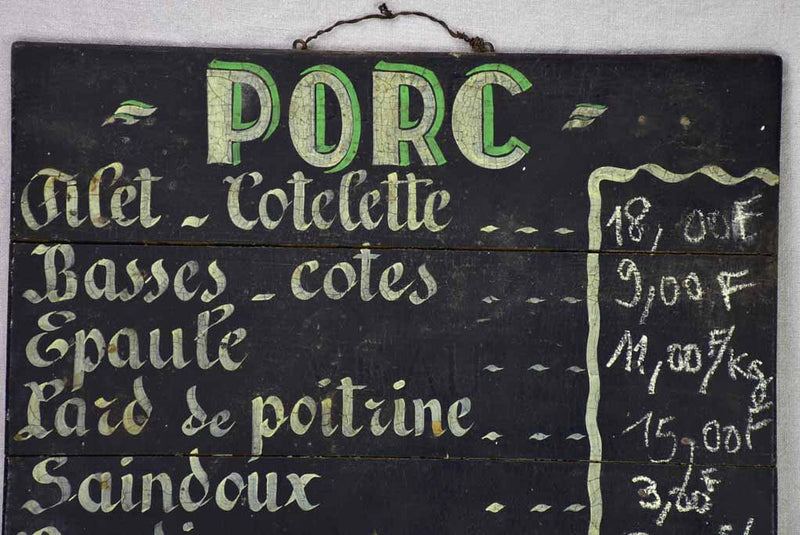 PORC
Filet - Cotelette - - - 18,00F
Basses - cotes - - - 9,00F
Epaule - - - 11,00F/Kg
Lard de poitrine - - - 15,00F
Saindoux - - - 3,00F